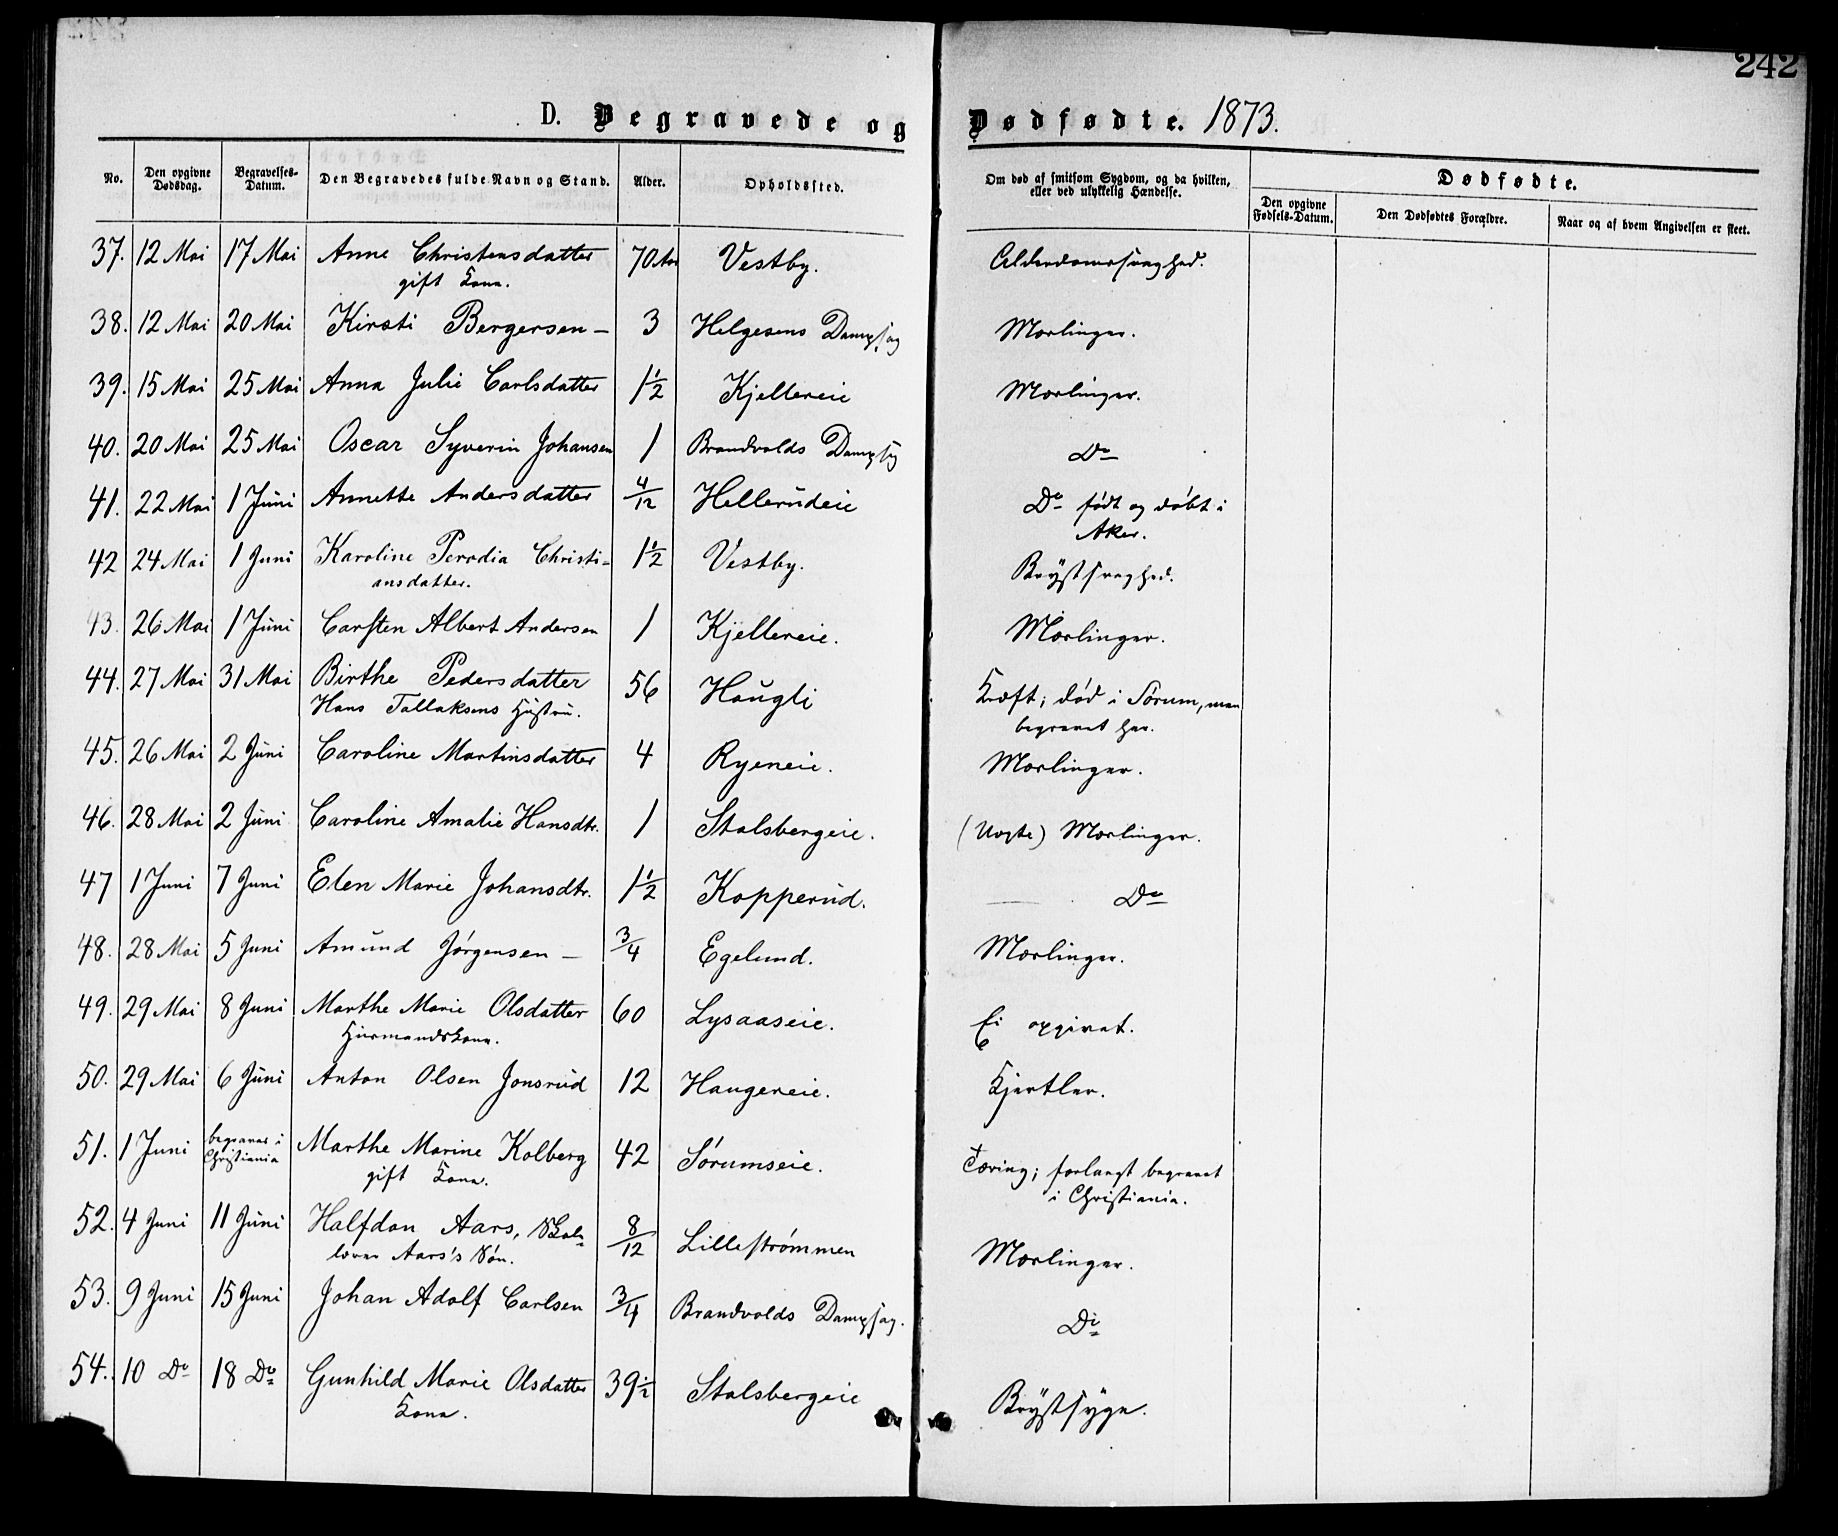 242
D. Begravede og Dødfødte. 1873.
No. | Den opgivne Dødsdag. | Begravelses-Datum. | Den Begravedes fulde Navn og Stand. | Alder. | Opholdssted. | Om død af smitsom Sygdom, og da hvilken, eller ved ulykkelig Hændelse. | Dødfødte. | Den opgivne Fødsels-Datum. | Den Dødfødtes Forældre. | Naar og af hvem Angivelsen er skeet.
37. 12 Mai 17 Mai Anne Christensdatter 70 Aar Vestby. Alderdomssvaghed.
gift Kone.
38. 12 Mai 20 Mai Kirsti Bergersen – 3 Helgesens Dampsag Mæslinger.
39. 15 Mai 25 Mai Anna Julie Carlsdatter 1½ Kjellereie Mæslinger.
40. 20 Mai 25 Mai Oscar Syverin Johansen 1 Brandvolds Dampsg Do
41. 22 Mai 1 Juni Annette Andersdatter 4/12 Hellerudeie Do født og døbt i
Aker.
42 24 Mai 1 Juni Karoline Perodia Christi-
ansdatter. 1½ Vestby. Brystsvaghed.
43. 26 Mai 1 Juni Carsten Albert Andersen 1 Kjellereie. Mæslinger.
44. 27 Mai 31 Mai Birthe Pedersdatter 56 Haugli Kræft; død i Sørum, men
Hans Tallaksens Hustru. begravet her.
45. 26 Mai 2 Juni Caroline Martinsdatter 4 Ryeneie. Mæslinger.
46. 28 Mai 2 Juni Caroline Amalie Hansdtr. 1 Stalsbergeie. (Uægte) Mæslinger.
47 1 Juni 7 Juni Elen Marie Johansdtr. 1½ Kopperud. Do
48. 28 Mai 5 Juni Amund Jørgensen – 3/4 Egelund. Mæslinger.
49. 29 Mai 8 Juni Marthe Marie Olsdatter 60 Lysaaseie. Ei opgivet.
Huusmandskone.
50. 29 Mai 6 Juni Anton Olsen Jonsrud 12 Haugereie. Kjertler.
51. 1 Juni begraves i Christiania Marthe Marine Kolberg 42 Sørumseie. Tæring; forlangt begravet
gift Kone. i Christiania.
52. 4 Juni 11 Juni Halfdan Aars, Skole-
lærer Aars's Søn. 8/12 Lillestrømmen Mæslinger.
53. 9 Juni 15 Juni Johan Adolf Carlsen 3/4 Brandvolds Dampsag. Do
54. 10 Do 18 Do Gunhild Marie Olsdatter 39½ Stalsbergeie Brystsyge.
Kone.